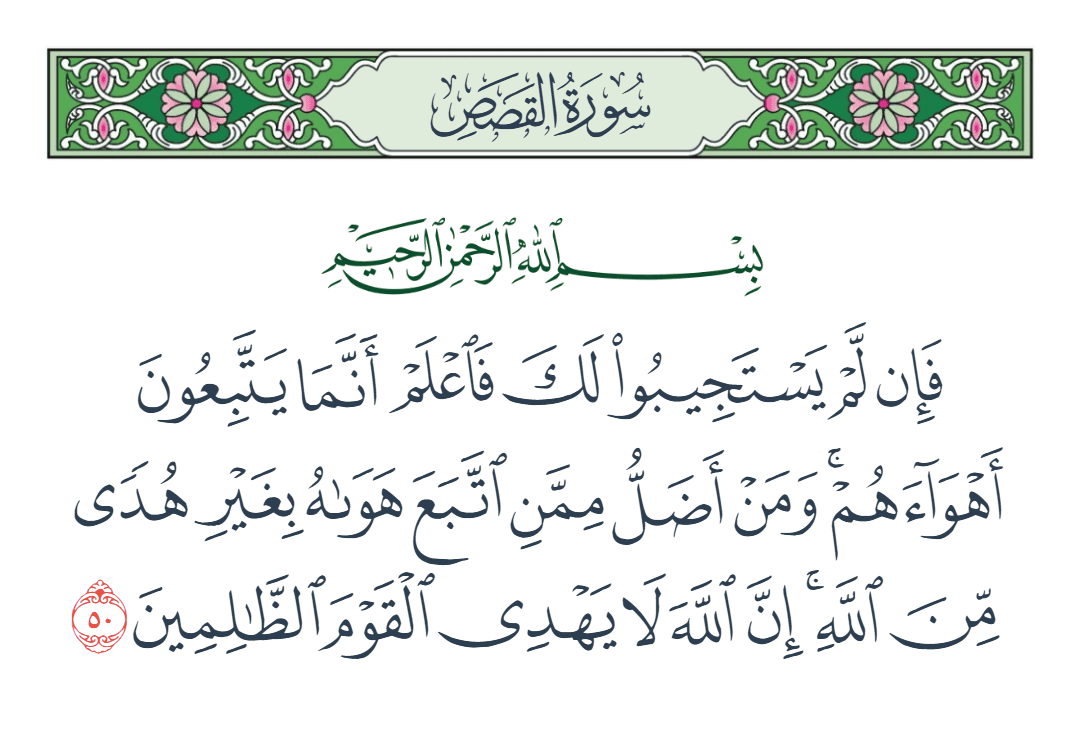 سُورَةُ القَصَصِ
بِسْمِ ٱللَّهِ ٱلرَّحْمَٰنِ ٱلرَّحِيمِ
فَإِن لَّمْ يَسْتَجِيبُوا۟ لَكَ فَٱعْلَمْ أَنَّمَا يَتَّبِعُونَ
أَهْوَآءَهُمْ ۚ وَمَنْ أَضَلُّ مِمَّنِ ٱتَّبَعَ هَوَىٰهُ بِغَيْرِ هُدَى
مِّنَ ٱللَّهِ ۚ إِنَّ ٱللَّهَ لَا يَهْدِى ٱلْقَوْمَ ٱلظَّٰلِمِينَ ٥٠